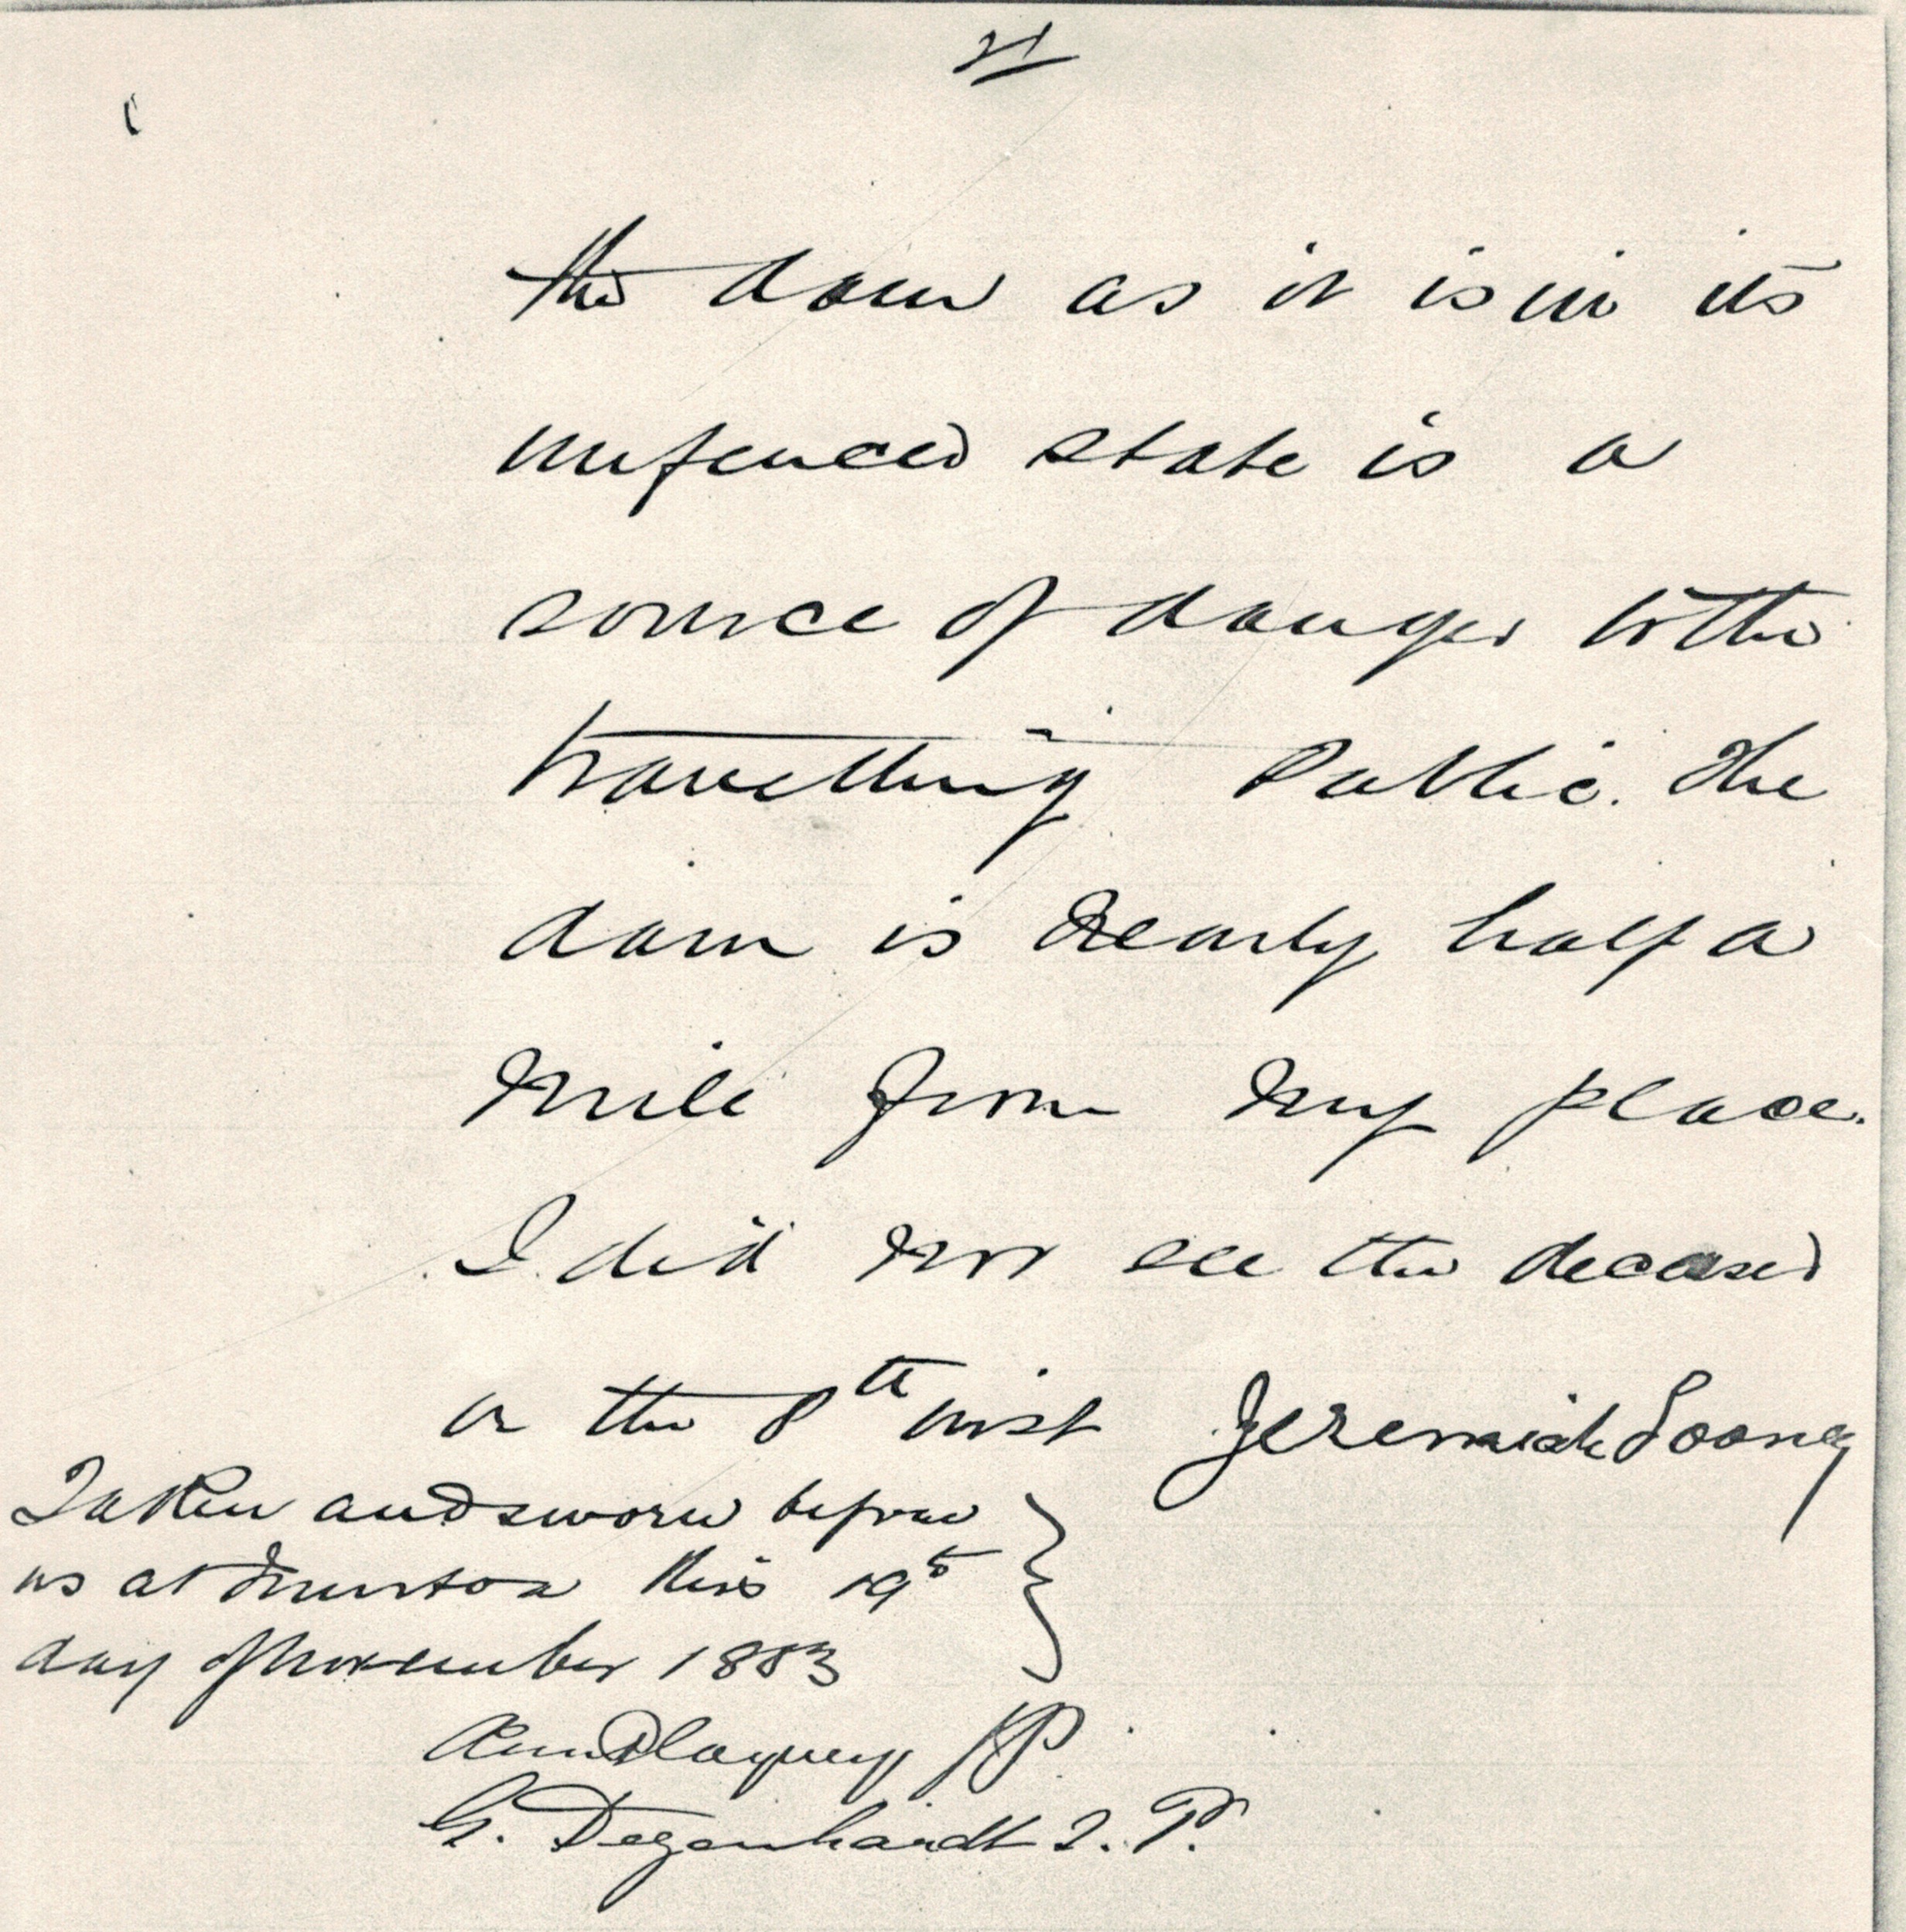 21
the dam as it is in its
unfenced state is a
source of danger to the
travelling Public. The
dam is Nearly half a
Mile from My place.
I did Not see the deceased
on the 8th inst Jeremiah Looney
Taken and sworn before
us at this 19th
day of November 1883
JP.
G. Degenhardt J. P.